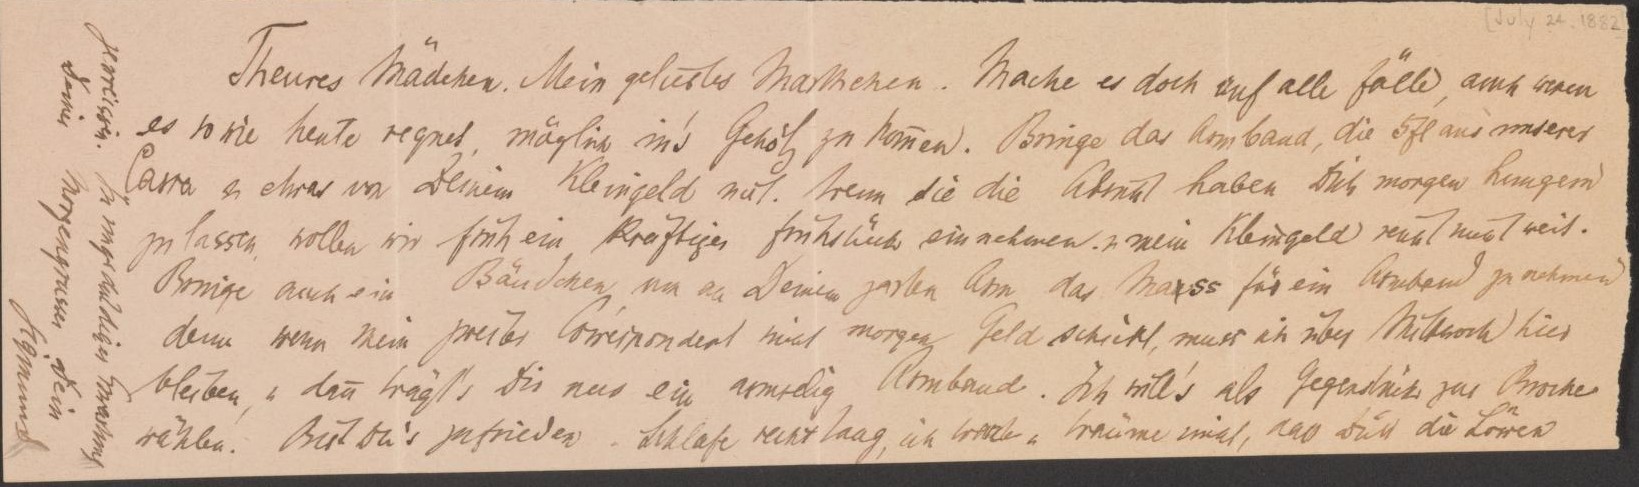 [July 24. 1882]
Theures Mädchen. Mein geliebtes Marthchen. Mache es doch auf alle Fälle, auch wenn
es so wie heute regnet, möglich in's Gehölz zu kom̄en. Bringe das Armband, die 5 fl aus unserer
Cassa u etwas von Deinem Kleingeld mit. Wenn sie die Absicht haben Dich morgen hungern
zu lassen, wollen wir früh ein kräftiges Frühstück einnehmen u mein Kleingeld reicht nicht weit.
Bringe auch ein Bändchen, um an Deinem zarten Arm das Mass für ein Armband zu nehmen
denn wenn mein zweiter Correspondent mir morgen Geld schickt, muss ich über Mittwoch hier
bleiben, u dan̄ trägt's Dir nur ein armselig Armband. Ich will's als Gegenstück zur Broche
wählen. Bist Du's zufrieden. Schlafe recht lang, ich wache u träume nicht, dass Dich die Löwen
zerrissen. In ungeduldiger Erwartung
Deines Morgengrusses Dein
Sigmund